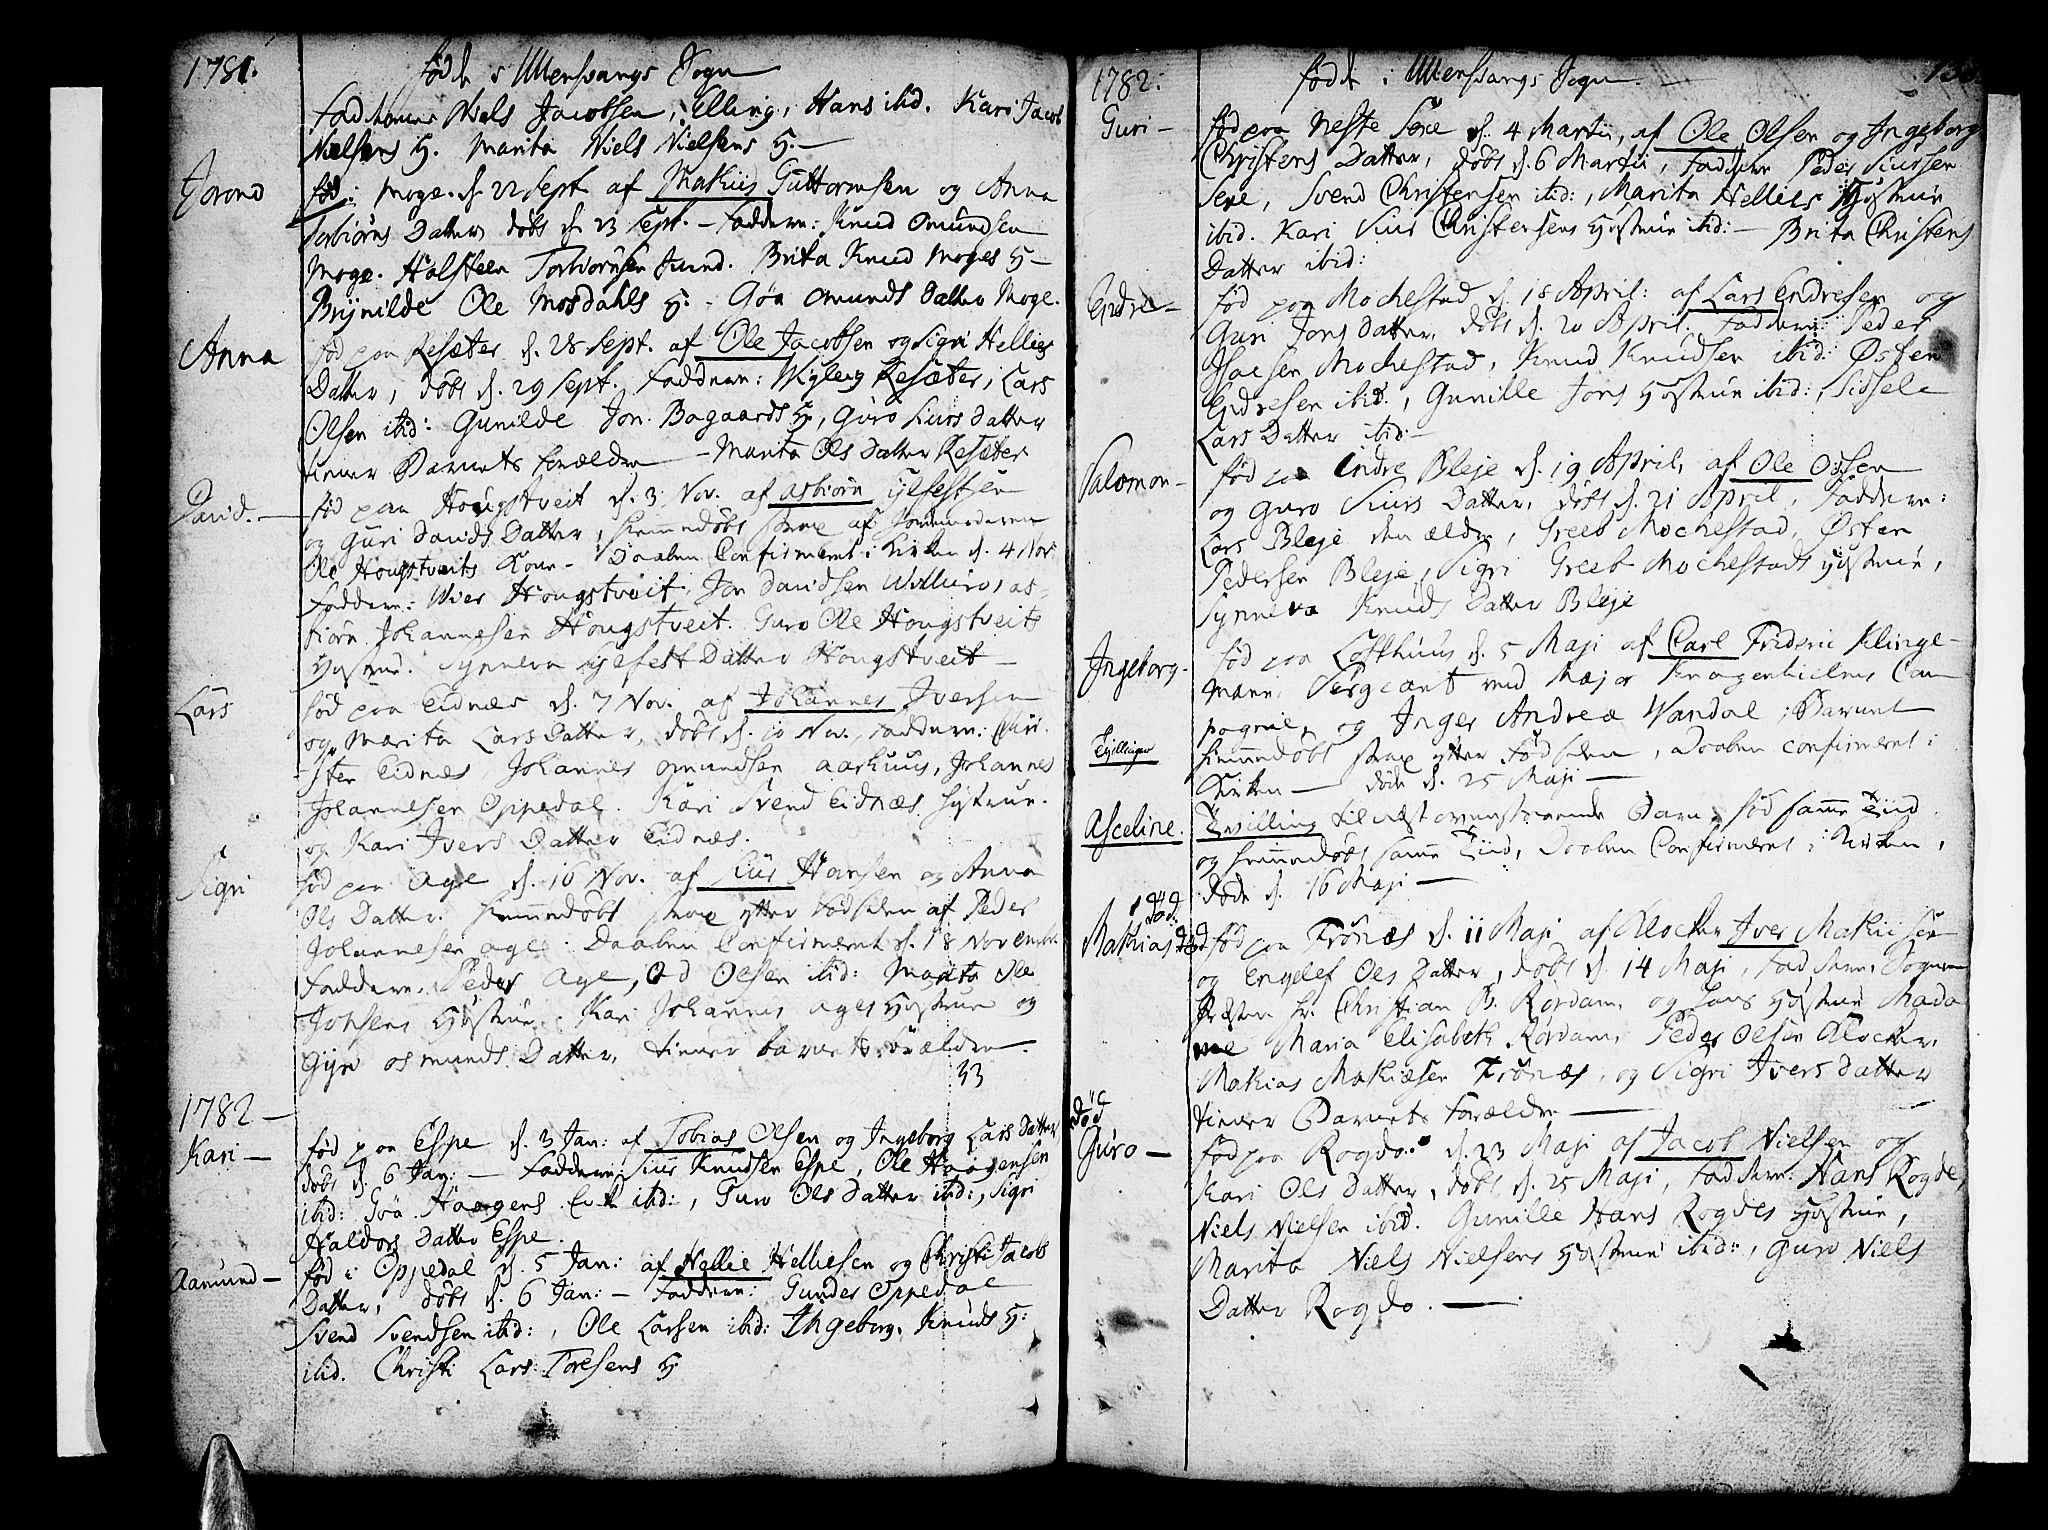 1781.
fødde i Ullensvangs Sogn
Fadderne Niels Jacobsen, Elling, Hans ibid. Kari Jacob
Nielsens H. Marita Niels Nielsens H. —
Jorond
fød i Moge d. 22 Sept. af Mathiis Guttormsen og Anna
Torbiørns Datter, døbt d. 23 Sept. — Faddere: Knud Omundsen
Moge. Halsteen Torbiørnsen Brita Knud Moges H —
Brynilde Ole Mosdahls H. - Gøa Omunds Datter Moge.
Anna
fød paa Resæter d. 28 Sept. af Ole Jacobsen og Sigri Hellies
Datter, døbt d. 29 Sept. Faddere: Resæter, Lars
Olsen ibid: Gunilde Jon Bogaards H, Guro Siurs Datter
tiener Barnets Forældre — Marita Ols Datter Resæter
David. —
fød paa Hougstveit d. 3 Nov. af Asbiørn
og Guri Davids Datter, hiemmedøbt strax af Jordmoderen
Ole Hougstveits Kone - Daaben Confirmeret i Kirken d. 4 Nov
Faddere: Wier Hougstveit, Jon Davidsen as-
biørn Johannesen Hougstveit. Guro Ole Hougstveits
Hustrue. Synneva Datter Hougstveit —
Lars
fød paa Eidnæs d. 7 Nov. af Johannes Iversen
og Marita Lars Datter, døbt d. 10 Nov., Faddere:
ster Eidnæs, Johannes Omundsen Aarhuus, Johannes
Johannesen Oppedal. Kari Svend Eidnæs Hustrue.
og Kari Ivers Datter Eidnæs.
Sigri
fød paa Age d. 16 Nov. af Siur Hansen og Anna
Ols Datter. Hiemmedøbt strax efter Fødselen af Peder
Johannesen Age. Daaben Confirmeret d. 18 Novembr
Faddere. Peder Age, Od Olsen ibid: Marita Ole
Johsens Hustrue. Kari Johannes Ages Hustrue og
Gyri Osmunds Datter, tiener barnets Forældre.
33
1782 —
Kari —
fød paa Espe d. 3 Jan: af Tobias Olsen og Ingeborg Lars Datter
døbt d. 6 Jan: — Faddere: Siur Knudsen Espe, Ole Haagensen
ibid: Gøa Haagens ibid:, Guro Ols Datter ibid:, Sigri
Haldors Datter Espe.
Aamund —
fød i Oppedal d. 5 Jan: af Hellie Helliesen og Christi Jacobs
Datter, døbt d. 6 Jan: — Faddere: Gunder Oppedal
Svend Svendsen ibid:, Ole Larsen ibid: Ingeborg Knuds H:
ibid. Christi Lars Toresens H
1782.
fødde i Ullensvangs Sogn. —
Guri —
fød paa Neste Sexe d. 4 Martii, af Ole Olsen og Ingeborg
Christens Datter, døbt d. 6 Martii, Faddere Peder Siursen
Sexe, Svend Christensen ibid:, Marita Hellies Hustrue
ibid. Kari Siur Christensens Hustrue ibid: — Brita Christens
Datter ibid:
Endre —
fød paa Mochestad d. 18 April: af Lars Endresen og
Guri Jons Datter, døbt d. 20 April. Faddere: Peder
Mochestad, Knud Knudsen ibid: Østen
Endresen ibid., Gunille Jons Hustrue ibid:, Sidsele
Lars Datter ibid: —
Salomon —
fød paa Indre Bleje d. 19 April, af Ole Olsen
og Guro Siurs Datter, døbt d. 21 April, Faddere:
Lars Bleje den ældre, Greeb Mochestad, Østen
Pedersen Bleje, Sigri Greeb Mochestads Hustrue,
Synneva Knuds Datter Bleje
Ingeborg —
fød paa Lofthuus d. 5 Maji af Carl Frideric Klinge-
mann, Sergeant ved Major Knagenhielms Com
pagnie, og Inger Andrea Wandal, Barnet
Tvillinger
hiemmedøbt strax efter Fødselen, Daaben confirmeret i
Kirken — døde d. 25 Maji —
Asceline.
Tvilling til næst ovenstaaende Barn, fød samme Tiid
og hiemmedøbt samme Tiid, Daaben Confirmeret i Kirken,
døde d. 16 Maji —
død
Mathias
fød paa Trônæs d. 11 Maji af Klocker Iver Mathisen
og Engelef Ols Datter, døbt d. 14 Maji, Faddere, Sogne
Præsten Hr. Christian B. Rørdam, og hans Hustrue Mada
me Maria Elisabeth Rørdam, Peder Olsen Klocker,
Mathias Mathiæsen Trônæs, og Sigri Ivers Datter
tiener Barnets Forældre —
død
Guro —
fød paa Rogde d. 23 Maji af Jacob Nielsen og
Kari Ols Datter, døbt d. 25 Maji, Faddere. Hans Rogde,
Niels Nielsen ibid. Gunille Hans Rogdes Hustrue,
Marita Niels Nielsens Hustrue ibid:, Guro Niels
Datter Rogdo. —